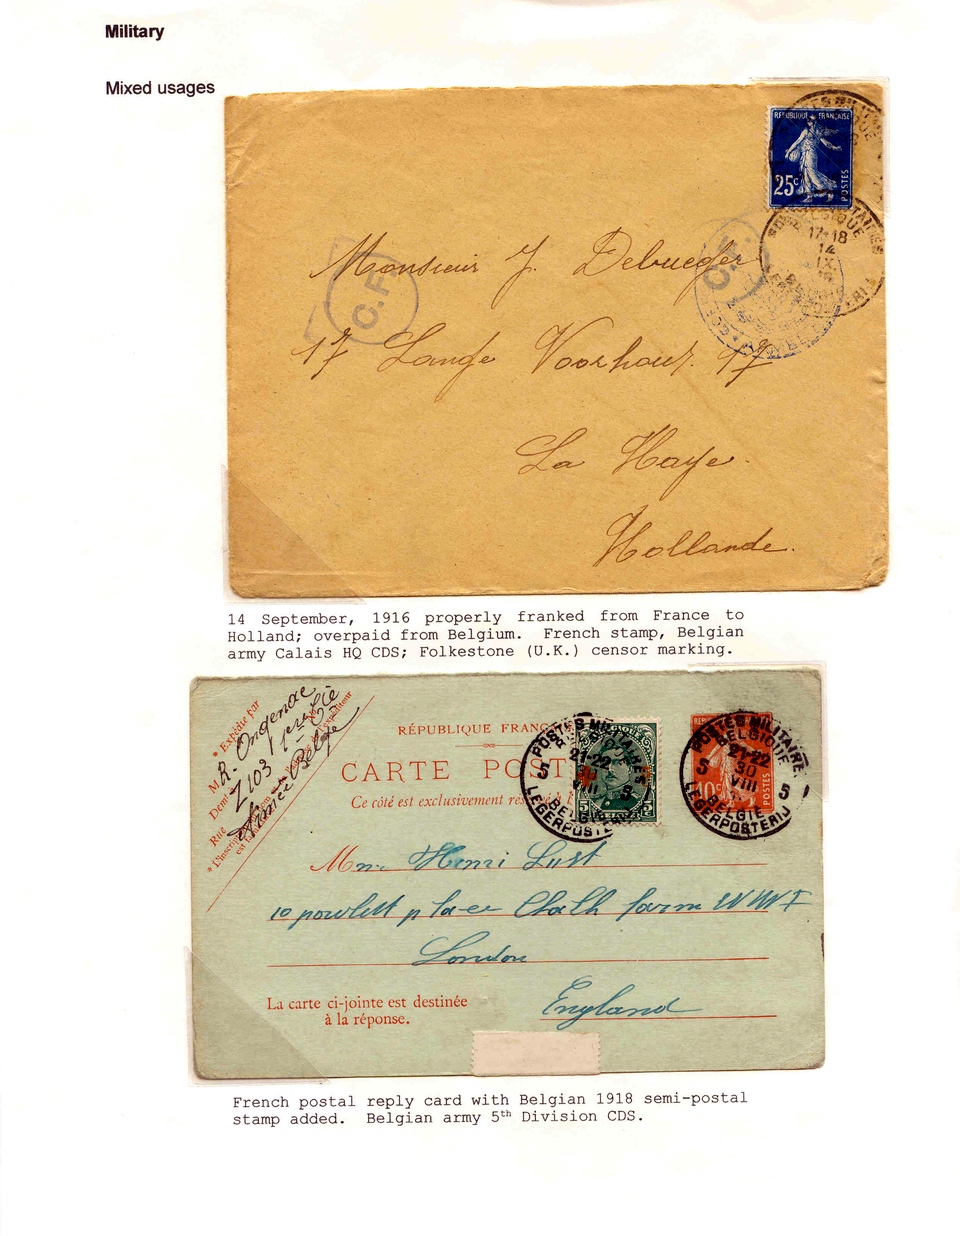 Military
Mixed usages
RÉPUBLIQUE FRANÇAISE
25c
POSTES
BELGIQUE
17-18
14
IX
C.F.
C.F.
Monsieur J. Debueger
17 Lange Voorhout. 17
La Haye.
Hollande.
14 September, 1916 properly franked from France to
Holland; overpaid from Belgium. French stamp, Belgian
army Calais HQ CDS; Folkestone (U.K.) censor marking.
* Expédié par
M R. Ongenae
Demt Z 103 1
Rue
France Belge
RÉPUBLIQUE FRANÇ
CARTE POST
Ce côté est exclusivement rés
POSTES MILITAIRES
BELGIQUE
21-22
30
VIII
5 5
BELGIE
LEGERPOSTERIJ
POSTES MILITAIRES
BELGIQUE
21-22
30
VIII
5 5
BELGIE
LEGERPOSTERIJ
10c
POSTES
Mme Henri Lust
10 powlett place Chalk farm NW I
London
England
La carte ci-jointe est destinée
à la réponse.
French postal reply card with Belgian 1918 semi-postal
stamp added. Belgian army 5th Division CDS.